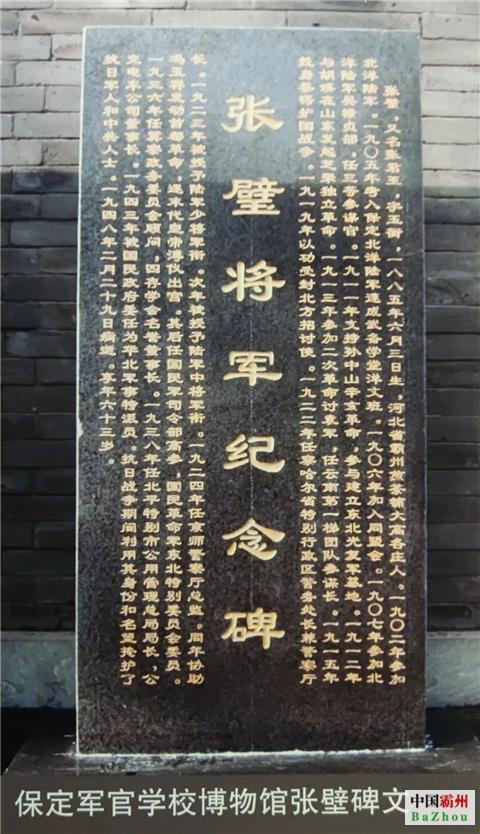 张璧，又名张君玉，字玉衡，一八八五年六月三日生，河北省霸州煎茶铺大高各庄人，一九〇二年参加
北洋陆军。一九〇五年考入保定北洋陆军速成武备学堂洋文班。一九〇六年加入同盟会。一九〇七年参加北
洋陆军吴禄贞部，任三等参谋官。一九一一年支持孙中山辛亥革命，参与建立东北光复军基地。一九一二年
与胡瑛在山东发起五聚独立革命。一九一三年参加二次革命讨袁军，任云南第一梯团队参谋长。一九一五年
投身蔡锷护国战争。一九一九年以功受封北方招讨使。一九二二年任察哈尔省特别行政区警务处长兼警察厅
张璧将军纪念碑
长。一九二二年被授予陆军少将军衔。次年被授予陆军中将军衔。一九二四年任京师警察厅总监。同年协助
冯玉祥发动首都革命，逐末代皇帝溥仪出宫。其后任国民军司令部高参，国民革命军东北特别委员会委员。
一九三六年任冀察政务委员会顾问，四存学会名誉董事长。一九三八年任北平特别市公用管理总局局长，公
交电车公司董事长。一九四三年被国民政府委任为华北军事特派员。抗日战争期间利用其身份和名望掩护了
抗日军人和爱央人士。一九四八年二月二十九日病逝。享年六十三岁。
保定军官学校博物馆张璧碑文
中国霸州
BaZhou